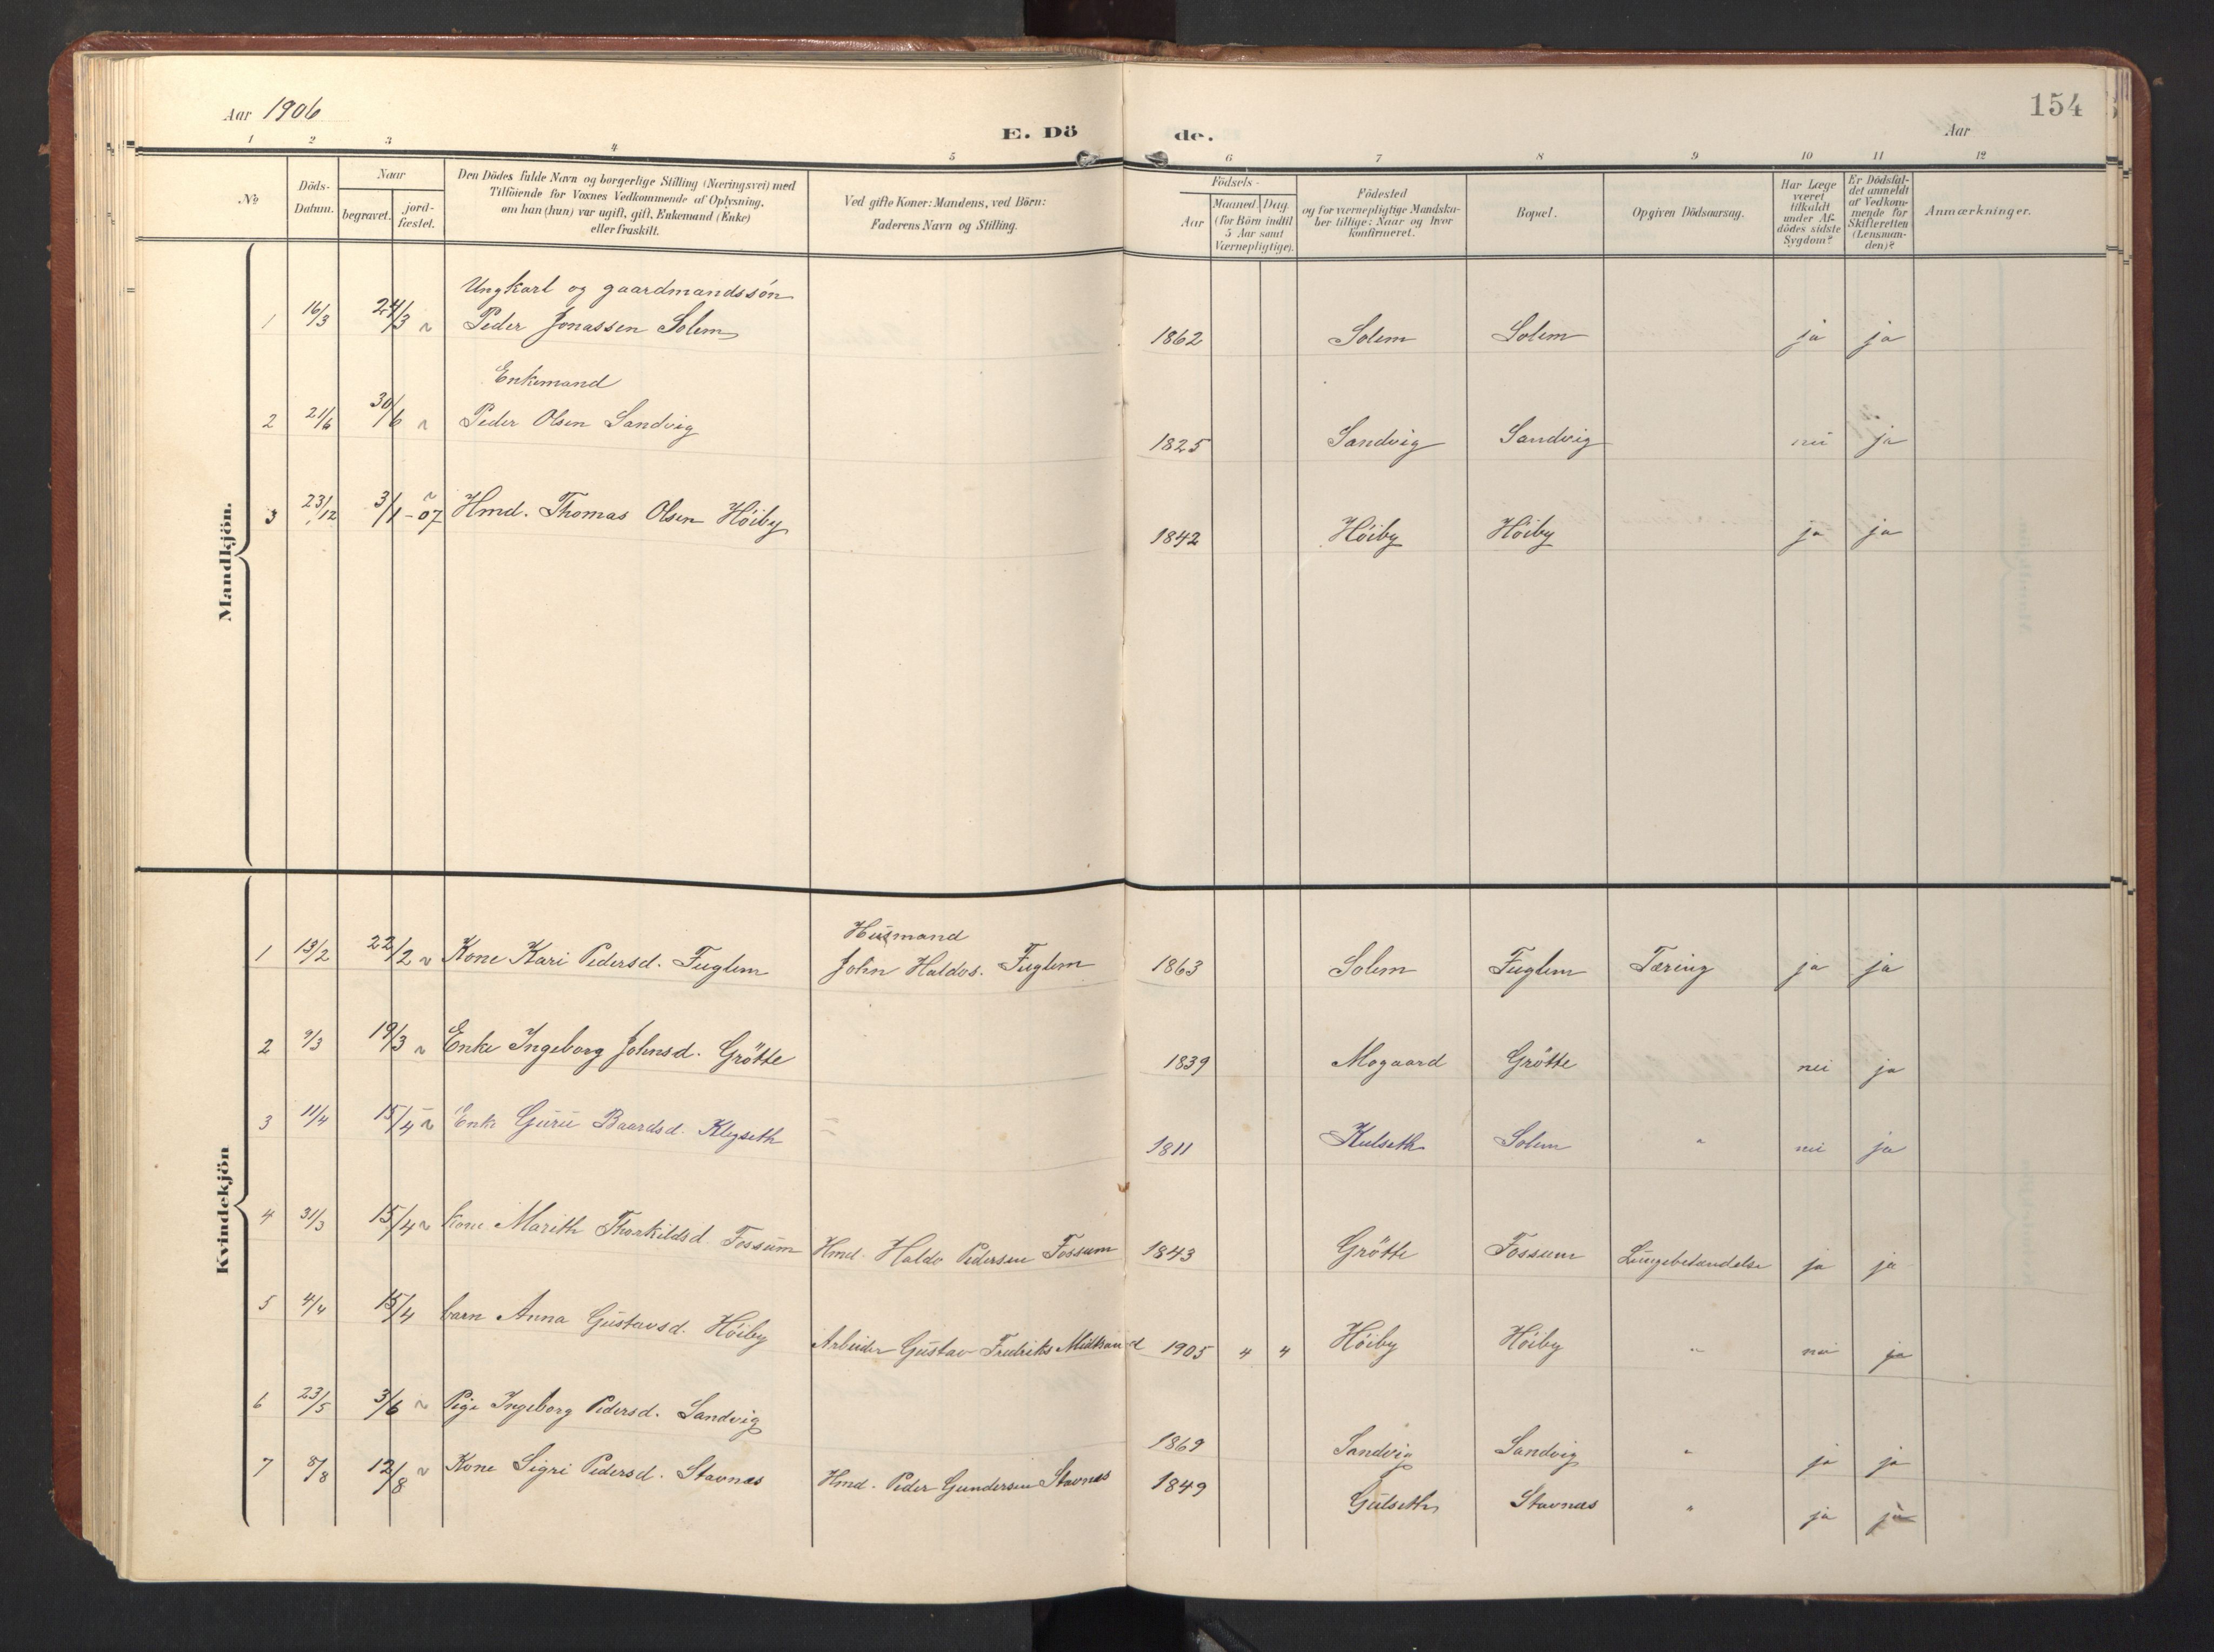 Aar 1906
E. Dö
de.
Aar
154
1 2 3 4 5 6 7 8 9 10 11 12
No
Döds-
Datum.
Naar
begravet.
jord-
fæstet.
Den Dödes fulde Navn og borgerlige Stilling (Næringsvei) med
Tilföiende for Voxnes Vedkommende af Oplysning,
om han (hun) var ugift, gift, Enkemand (Enke)
eller fraskilt.
Ved gifte Koner: Mandens, ved Börn:
Faderens Navn og Stilling.
Födsels-
Aar
Maaned. Dag
(for Börn indtil
5 Aar samt
Værnepligtige).
Födested
og for værnepligtige Mandska-
ber tillige: Naar og hvor
konfirmeret.
Bopæl.
Opgiven Dödsaarsag.
Har Læge
været
tilkaldt
under Af-
dödes sidste
Sygdom?
Er Dödsfal-
det anmeldt
af Vedkom-
mende for
Skifteretten
(Lensman-
den)?
Anmærkninger.
Mandkjön.
Ungkarl og gaardmandssön
1 16/3 24/3 ~ Peder Jonassen Solem 1862 Solem Solem ja ja
Enkemand
2 21/6 30/6 ~ Peder Olsen Sandvig 1825 Sandvig Sandvig nei ja
3 23/12 3/1-07 ~ Hmd. Thomas Olsen Höiby 1842 Höiby Höiby ja ja
Kvindekjön
Husmand
1 13/2 22/2 ~ Kone Kari Pedersd. Fuglem John Haldos. Fuglem 1863 Solem Fuglem Tæring ja ja
2 9/3 19/3 ~ Enke Ingeborg Johnsd. Grötte 1839 Mogaard Grötte nei ja
3 11/4 15/4 ~ Enke Guru Baardsd. Klegseth 1811 Kulseth Solem " nei ja
4 31/3 15/4 ~ Kone Marith Thorkildsd Fossum Hmd. Haldo Pedersen Fossum 1843 Grötte Fossum Lungebetændelse ja ja
5 4/4 15/4 barn Anna Gustavsd. Höiby Arbeider Gustav Fredriks. Midtsand 1905 4 4 Höiby Höiby " nei ja
6 23/5 3/6 ~ Pige Ingeborg Pedersd. Sandvig 1869 Sandvig Sandvig " ja ja
7 8/8 12/8 ~ Kone Sigri Pedersd. Stavnæs Hmd. Peder Gundersen Stavnes 1849 Gulseth Stavnæs " ja ja